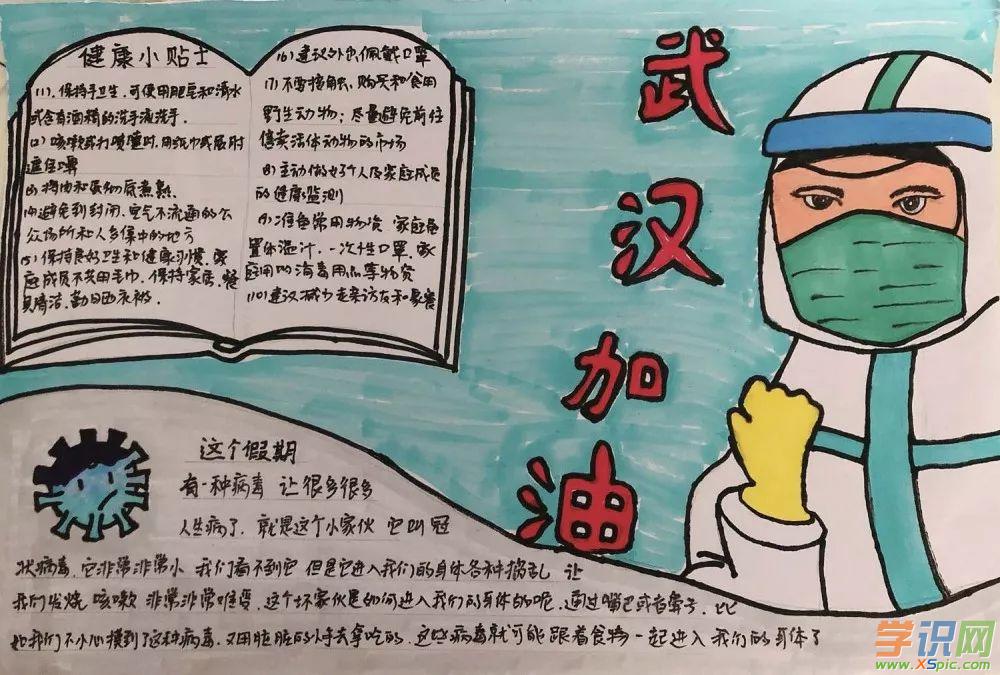 健康小贴士
(1).保持手卫生.可使用肥皂和清水
或含有酒精的洗手液洗手.
(2)咳嗽或打喷嚏时.用纸巾或屈肘
遮住口鼻
(3)将肉和蛋彻底煮熟.
(4)避免到封闭.空气不流通的公
众场所和人多集中的地方
(5)保持良好卫生和健康习惯.家
庭成员不共用毛巾.保持家居.餐
具清洁.勤晒衣被.
(6)建议外出佩戴口罩
(7)不要接触、购买和食用
野生动物;尽量避免前往
售卖活体动物的市场
(8)主动做好个人及家庭成员
的健康监测
(9)准备常用物资 家庭备
置体温计.一次性口罩.家
庭用的消毒用品等物资
(10)建议减少走亲访友和聚餐
武汉加油
这个假期
有一种病毒 让很多很多
人生病了.就是这个小家伙 它叫冠
状病毒.它非常非常小 我们看不到它 但是它进入我们的身体各种捣乱 让
我们发烧 咳嗽 非常非常难受.这个坏家伙是如何进入我们的身体的呢.通过嘴巴或者鼻子.比
如我们不小心摸到了这种病毒.又用脏脏的小手去拿吃的.这些病毒就可能跟着食物一起进入我们的身体了
学识网
www.XSpic.com